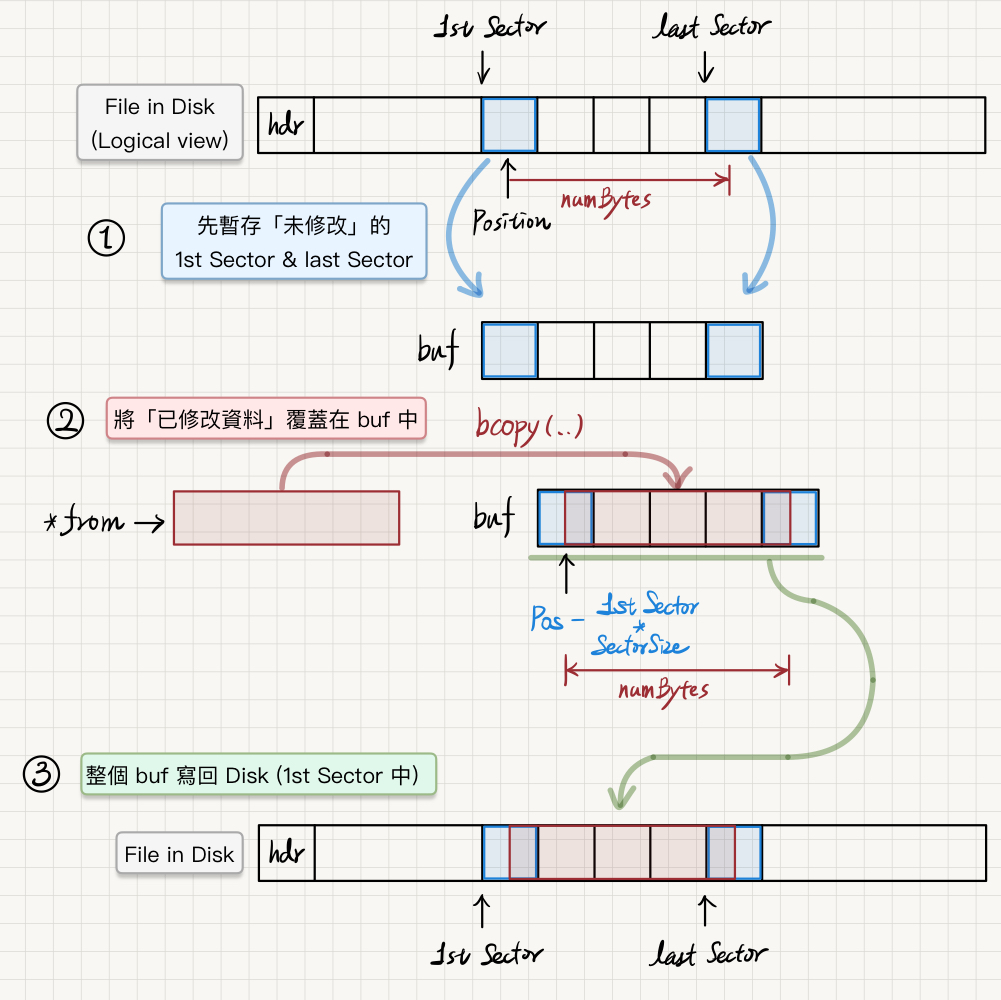 1st Sector
last Sector
File in Disk
(Logical view)
hdr
numBytes
Position
①
先暫存「未修改」的
1st Sector & last Sector
buf
②
將「已修改資料」覆蓋在 buf 中
bcopy(..)
*from
buf
Pos - 1st Sector
*
SectorSize
numBytes
③
整個 buf 寫回 Disk (1st Sector 中)
File in Disk
hdr
1st Sector
last Sector